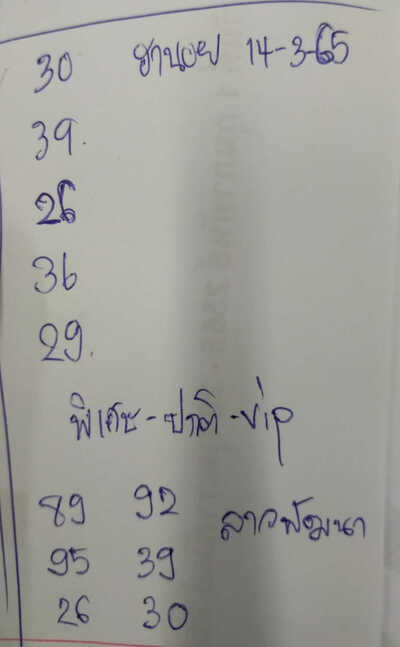 30 ฮานอย 14-3-65
39.
26
36
29.
พิเศษ-ปกติ-vip
89 92 ลาวพัฒนา
95 39
26 30